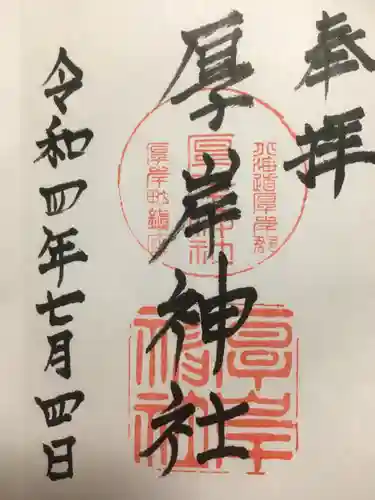 奉拝
厚岸神社
令和四年七月四日
北海道厚岸郡
厚岸神社
厚岸町鎮座
厚岸神社